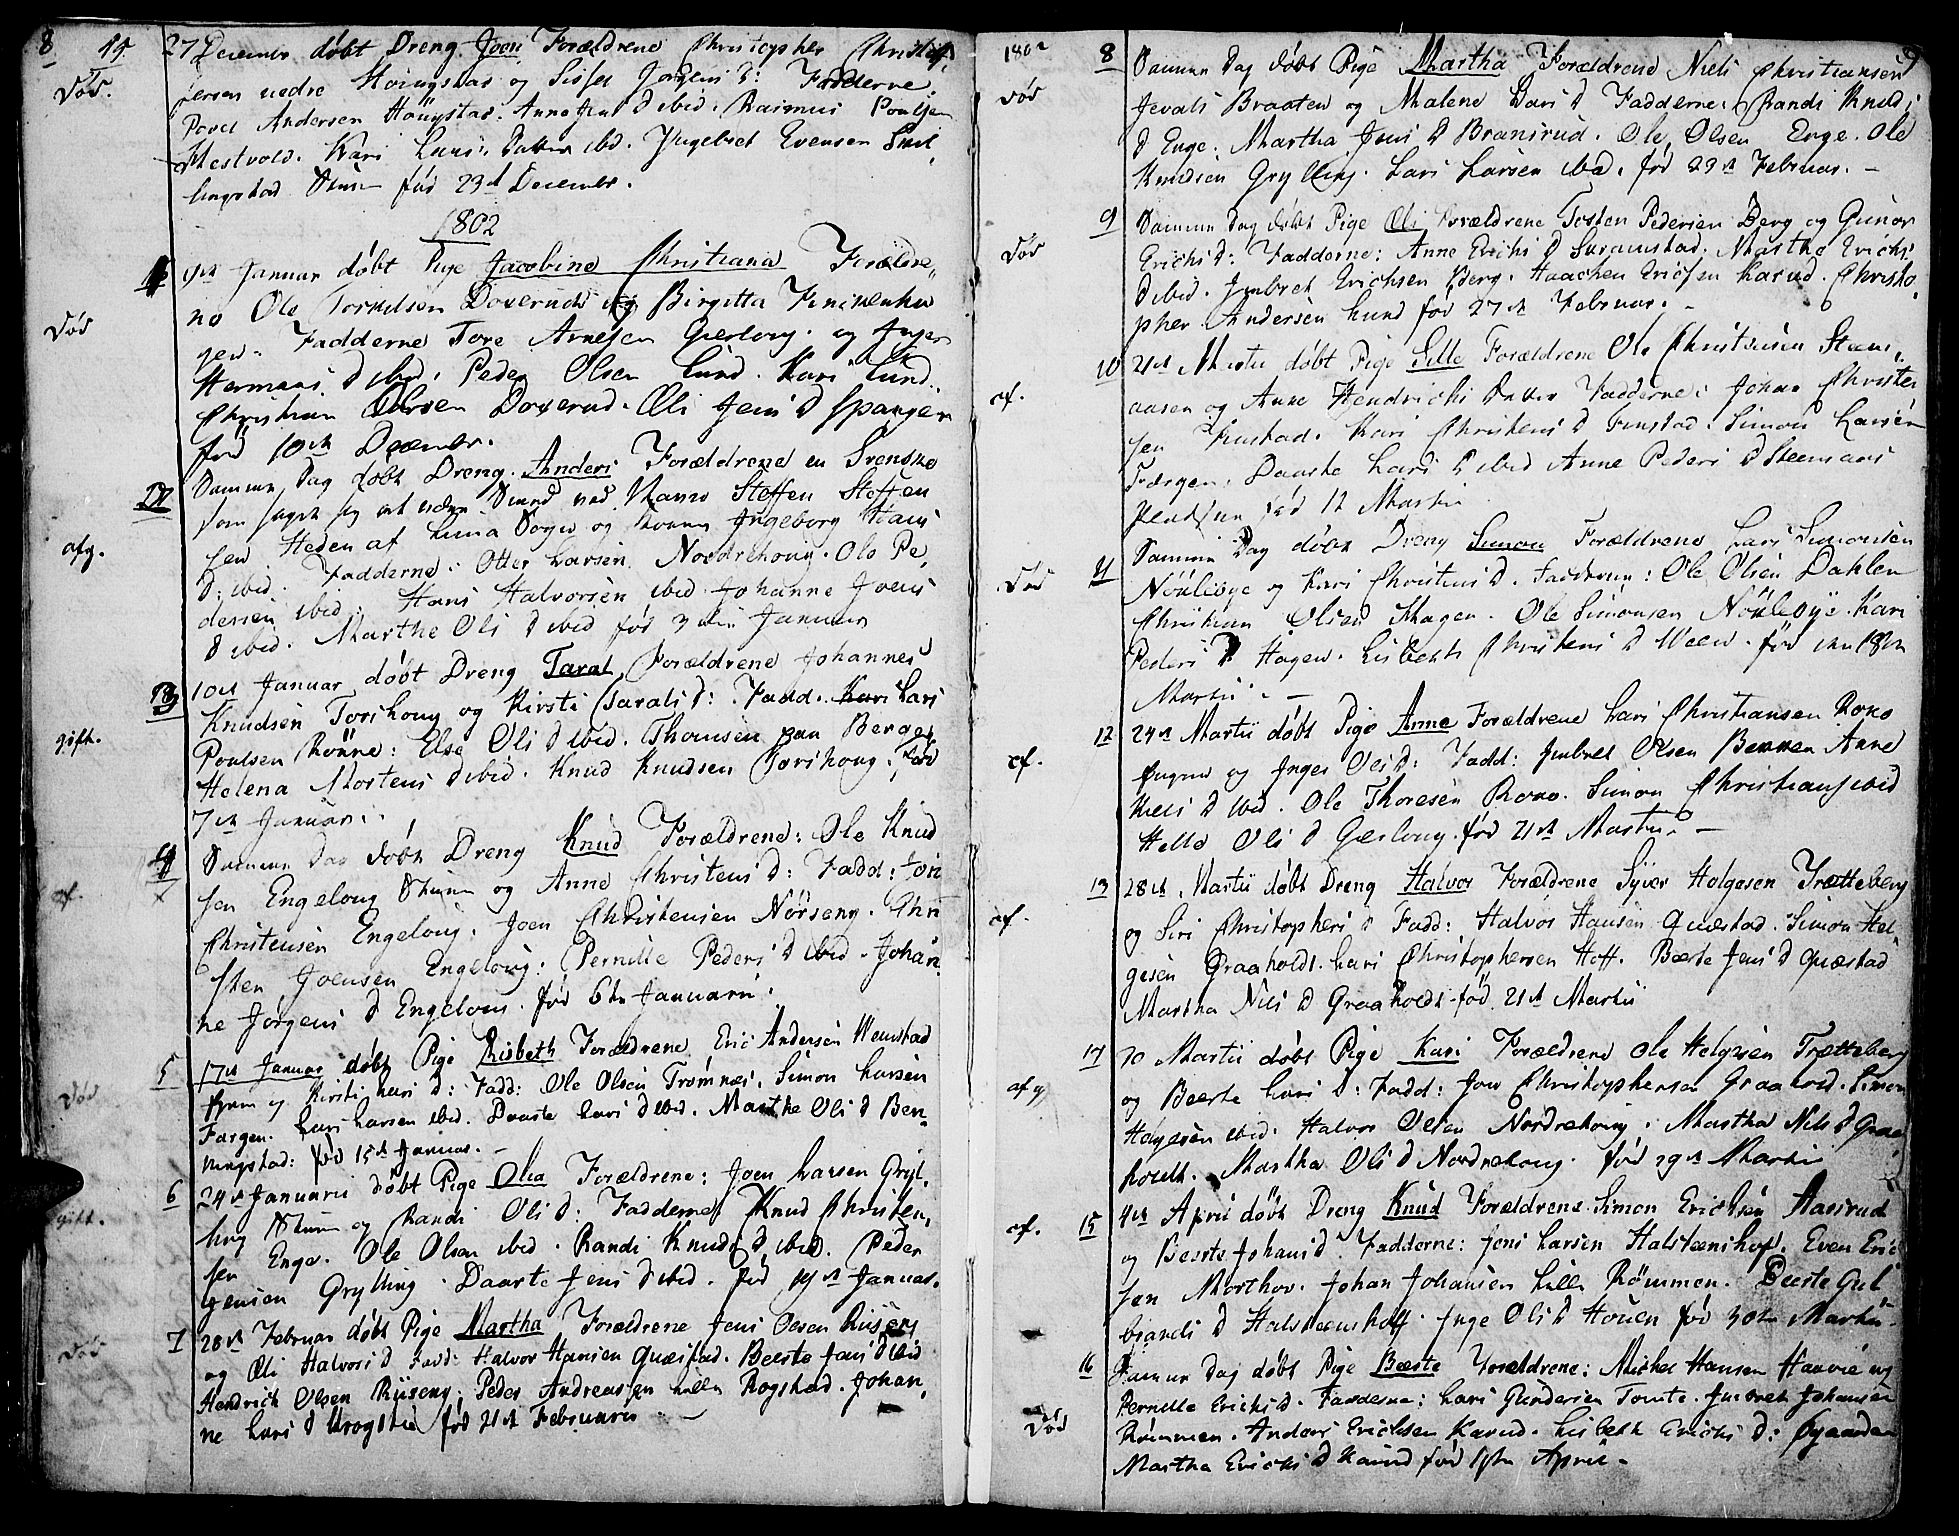 8 44 27 December døbt Dreng Joen Forældrene Christopher Christof,
Død. fersen nedre Houngstad og Sissel Jørgens D: Fadderne:
Povel Andersen Houngstad. Anne Jens D ibid. Rasmus Poulsen
Mestvold. Kari Lars Datter ibd. Yngebret Evensen
lingstad fød 23d December.
1802
Januar døbt Pige Jacobine Christiana Foreldre,
ne Ole Dorerude og Birgitta
Død gen. Fadderne Tore Arnesen Gierlong. og Inger
Hermans D ibid. Peder Olsen Lund. Kari Lund.
Christian Olsen Doxerud. Oli Jens D Spangen
fød 10de December.
2 Samme Dag døbt Dreng. Anders Forældrene en Svensk
som Navn Steffen Steffen
afg. sen Heden af Lima Sogn og Ingeborg Hans
D. ibid. Fadderne: Otter Larsen Nordrehoug. Ole Pe,
dersen ibid: Hans Halvorsen ibid. Johanne Joens
D ibid. Marthe Ols D ibid fød 3 Januar
3 10de Januar døbt Dreng Taral Forældrene Johannes
Knudsen Torshoug og Kirsti Tarals D: Fadd. Lars
gift. Poulsen Rønne: Else Ols D ibid. Thomsen Berger
Helena Mortens D ibid. Knud Knudsen Torshoug. fød
7de Januar.
4 Samme Dag døbt Dreng Knud Forældrene: Ole Knud
af. sen Engeloug og Anne Christens D: Fadd: Jon
Christensen Engeloug. Joen Christensen Nørseng. Chri
sten Joensen Engeloug: Pernille Peders D ibid. Johan
ne Jørgens D Engeloug. fød 6te Januarii.
5 17de Januar døbt Pige Lisbeth Forældrene Eric Andersen Wemstad
Død og Kirsti Lars D: Fadd: Ole Olsen Tromnæs. Simon Larsen
Fargen. Lars Larsen ibid. Daarte Lars D ibid. Marthe Ols D Ben
ningstad: fød 15de Januar. —
6 24de Januarii døbt Pige Olea Forældrene: Joen Larsen Gryl,
gift. ling og Randi Ols D: Fadderne: Knud Christen,
sen Enge. Ole Olsen ibid. Randi Knuds D ibid. Peder
Jensen Grylling. Daarte Jens D ibid. fød 19de Januar.
7 28de Februar døbt Pige Martha Forældrene Jens Olsen Riiseng
Død og Oli Halvors D Fadd: Halvor Hansen Quæstad. Beerte Jens D ibid
Hendrich Olsen Riiseng. Peder Andreassen Lille Rogstad. Johan,
ne Lars D Krogstie fød 21de Februarii —
1802 8 Samme Dag døbt Pige Martha Forældrene Niels Christiansen 9
Død Jevals Braaten og Malene Lars D Fadderne: Randi Knud,
D Enge. Martha Jens D Bransrud. Ole Olsen Enge. Ole
Knudsen Grylling. Lars Larsen ibd. fød 23de Februar. —
9 Samme Dag døbt Pige Oli Forældrene Tosten Pedersen Berg og Gunor
Død Erichs D: Fadderne: Anne Erichs D Suramstad. Marthe Erichs
D ibid. Imbret Erichsen Berg. Haachen Ericsen Karud. Christo,
pher Andersen Lund fød 27de Februar. —
10 21de Martii døbt Pige Sille Forældrene Ole Christensen Steens,
af. aasen og Anne Hendrichs Datter Fadderne: Johan Christen
sen Finstad. Kari Christens D Finstad. Simon Larsen
Fargen. Daarte Lars D ibid Anne Peders D Steenaas
fød 12 Martii
11 Samme Dag døbt Dreng Simon Forældrene Lars Simonsen
Død Nøklebye og Kari Christens D. Fadderne: Ole Olsen Dahlen
Christian Olsen Skagen. Ole Simonsen Nøklebye. Kari
Peders D Hagen. Lisbeth Christens D Ween. fød den 18de
Martii. —
12 24de Martii døbt Pige Anne Forældrene Lars Christiansen Roko
af. og Inger Ols D: Fadd: Imbret Olsen Anne
Niels D ibid. Ole Thoresen Roko. Simon Christians ibid
Helle Ols D Gierloug. fød 21de Martii. —
13 28de Martii døbt Dreng Halvor Forældrene Syver Helgesen Trætteberg
af. og Siri Christophers D Fadd: Halvor Hansen Quæstad. Simon Hel,
gesen Graaholdt. Lars Christophersen Hoff. Beerte Jens D Quæstad
Martha Nils D Graaholdt fød 21de Martii
14 30 Martii døbt Pige Kari Forældrene Ole Helgesen Trætteberg
afg og Beerte Lars D: Fadd: Joen Christophersen Graahold. Simon
Helgesen ibid. Halvor Olsen Nordrehoug. Martha Nils D Graa
holdt. Martha Ols D Nordrehoug. fød 29de Martii
af. 15 4de April døbt Dreng Knud Forældrene Simon Erichsen Aasrud
og Beerte Johans D. Fadderne: Jens Larsen Halsteenshof. Even Eric
sen Morthor. Johan Johansen Lille Rømmen. Beerte Gul
brands D Halsteenshoff. Inge Ols D Houen fød 30te Martii.
16 Samme Dag døbt Pige Beerte Forældrene: Michel Hansen Haavie og
Pernille Erichs D. Fadderne: Lars Gundersen Tomte. Imbret Johansen
Død Rømmen. Anders Erichsen Karud. Lisbeth Erichs D: Øgaarden
Martha Erichs D Karud fød 1ste April. —